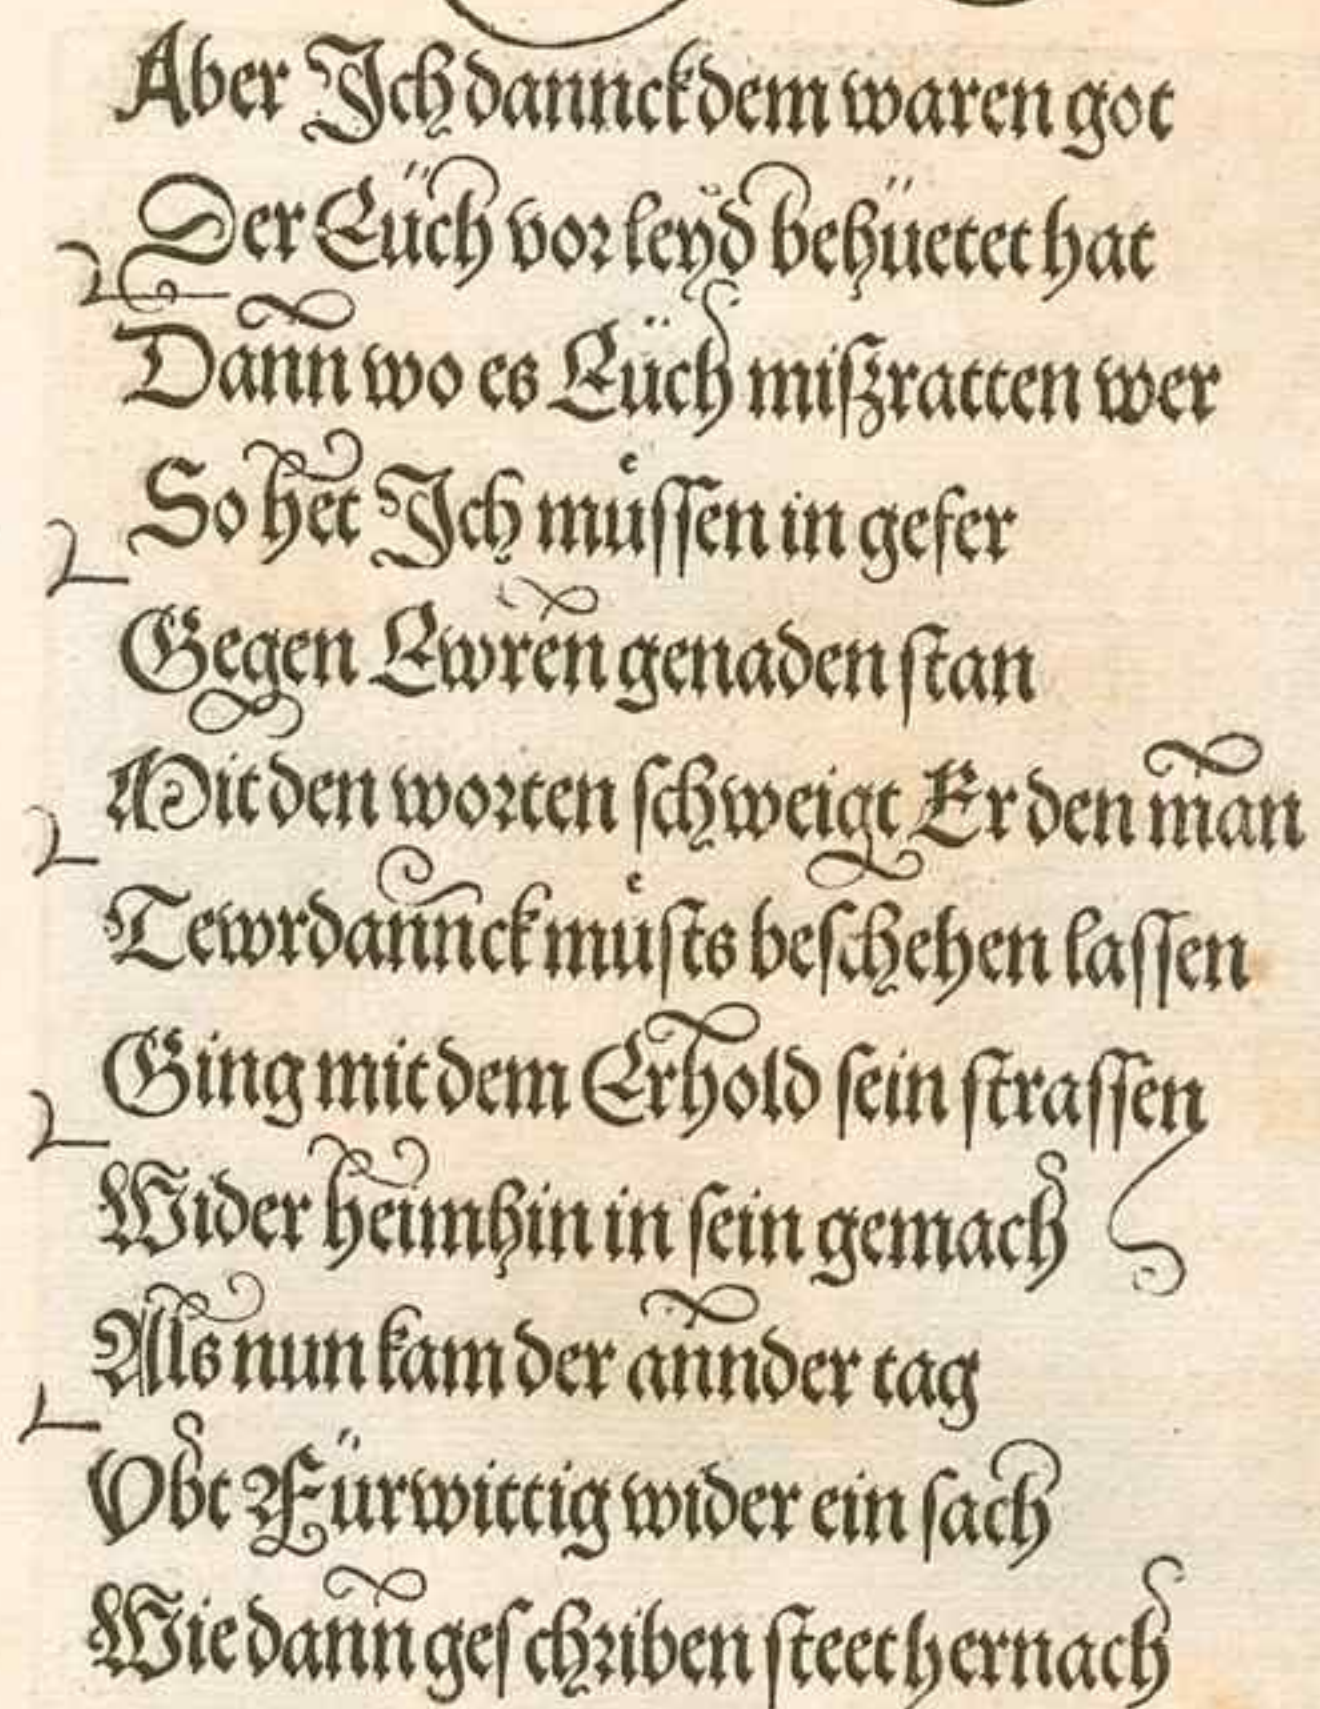 Aber Ich dannck dem waren got
Der Eüch vor leyd behüetet hat
Dann wo es Eüch miſzratten wer
So het Ich muͤſſen in gefer
Gegen Ewren genaden ſtan
Mit den worten ſchweigt Er den man
Tewrdannck muͤſts beſchehen laſſen
Ging mit dem Erhold ſein ſtraſſen
Wider heimhin in ſein gemach
Als nun kam der annder tag
Vbt Fürwittig wider ein ſach
Wie dann geſchriben ſteet hernach